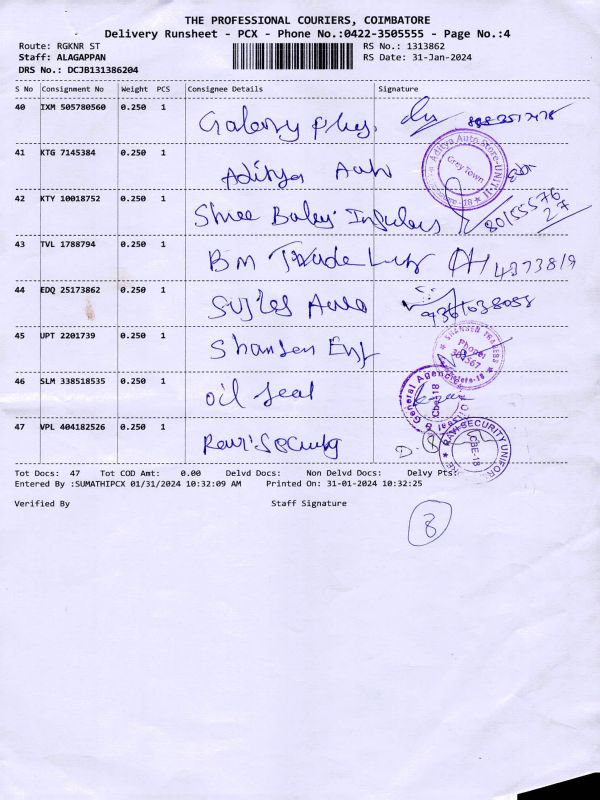 THE PROFESSIONAL COURIERS, COIMBATORE
Delivery Runsheet - PCX - Phone No.:0422-3505555 - Page No.:4
Route: RGKNR ST RS No.: 1313862
Staff: ALAGAPPAN RS Date: 31-Jan-2024
DRS No.: DCJB131386204
S No Consignment No Weight PCS Consignee Details Signature
40 IXM 505780560 0.250 1 Galaxy
41 KTG 7145384 0.250 1 Aditya Auto
Aditya Auto Store-UNIT-II
Grey Town
42 KTY 10018752 0.250 1 Shree Balaji 80155576
27
43 TVL 1788794 0.250 1 BM Trade 4373819
44 EDQ 25173862 0.250 1 Auto 9361038055
45 UPT 2201739 0.250 1 Shansen
SHANSEN TRADERS
Phone:
46 SLM 338518535 0.250 1 oil Seal
Oilseal & General Agencies
Cbe-18
47 VPL 404182526 0.250 1 Ravi Security
RAVI SECURITY UNIFORM
CBE-18
Tot Docs: 47 Tot COD Amt: 0.00 Delvd Docs: Non Delvd Docs: Delvy Pts:
Entered By :SUMATHIPCX 01/31/2024 10:32:09 AM Printed On: 31-01-2024 10:32:25
Verified By Staff Signature
8